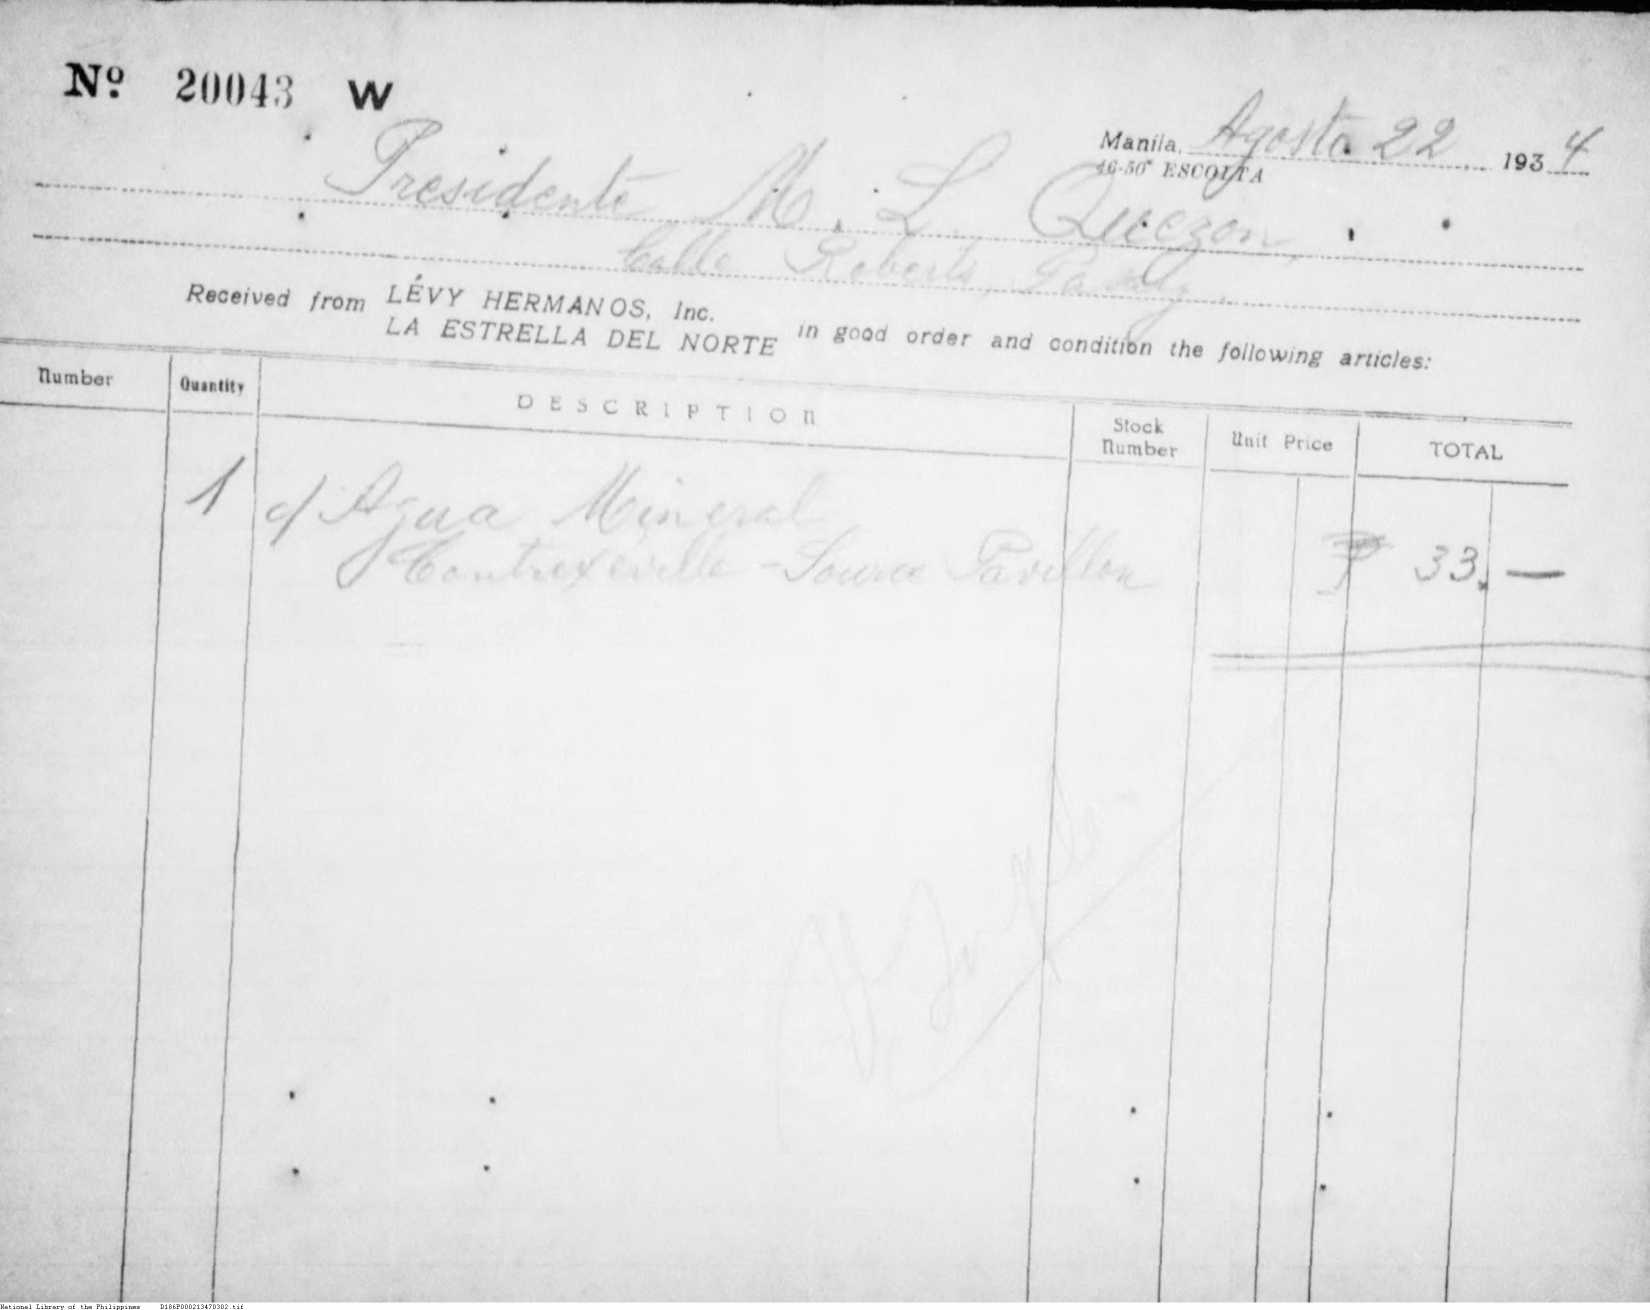 Nº 20043 W
Manila, Agosto 22 1934
46-50 ESCOLTA
Presidente M. L. Quezon,
Calle Roberts, Pasay.
Received from LÉVY HERMANOS, Inc.
LA ESTRELLA DEL NORTE in good order and condition the following articles:
Number Quantity DESCRIPTION Stock Number Unit Price TOTAL
1 c/ Agua Mineral
Contrexéville - Source Pavillon ₱ 33.—
National Library of the Philippines D186P000213470302.tif